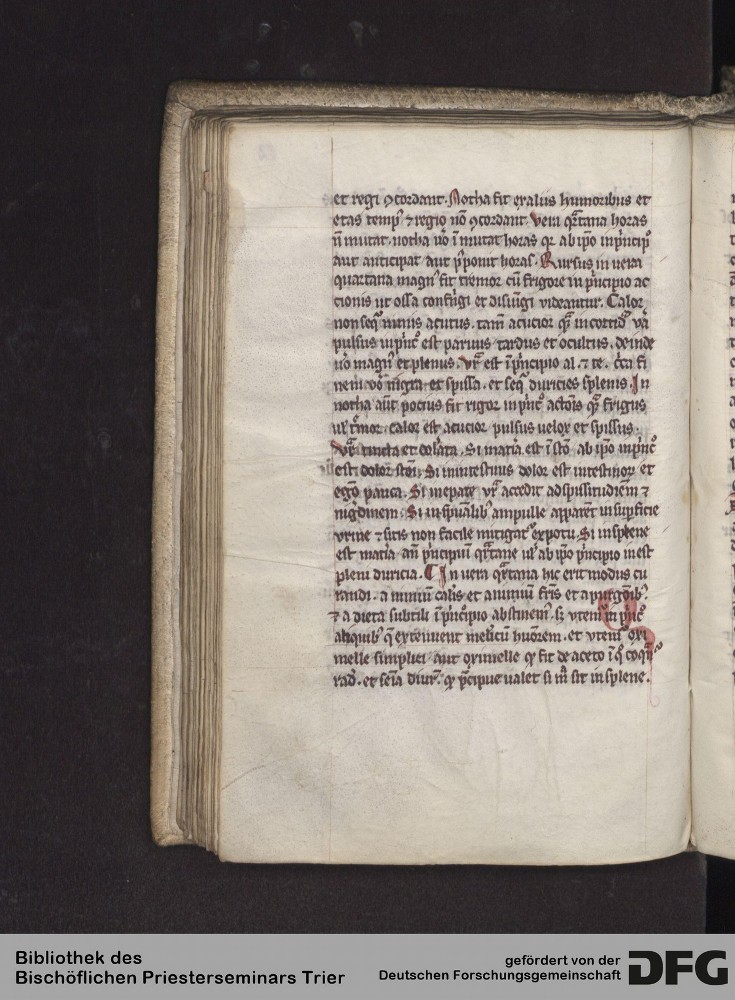 et regi ꝯcordant. Notha fit ex aliis humoribus et
etas temp⁹ ⁊ regio nō ꝯcordant. Vera q̃rtana horas
n̄ mutat. notha v̊o ī mutat horas qr ab ip̄o in p̀ncip̊
aut anticipat aut p̄ponit horas. Rursus in uera
quartana magn⁹ fit tremor cū frigore in p̀ncipio ac
cionis ut ossa confrīgi et disiūgi videantur. Calor
non seq̄ nimis acutus. tam̄ acucior q̃ in cottid̊
pulsus in p̀nc̊ est paruus tardus et ocultus. deinde
v̊o magn⁹ et plenus. vr̄ est ī p̀ncipio al. ⁊ te. c̀ca fi
nem v̊o nigra et spissa. et seq̄ duricies splenis. In
notha aūt pocius fit rigor in p̀nc̊ actōis q̃ frigus
ul' t̀mor. calor est acucior pulsus uelox et spissus.
Vr̄ tincta et colata. Si mat̀ia est ī stō ab ip̄o in p̀nc̊
est dolor stōi. Si in intestinis dolor est intestinoꝝ et
egō pauca. Si in epate vr̄ accedit ad spissitudiēm ⁊
nig̀dinem. Si in spūalib⁹ ampulle apparēt in supficie
vrine ⁊ sitis non facile mitigat᷑ ex potu. Si in splene
est mat̀ia an̄ p̀ncipiū q̃rtane ul' ab ip̄o p̀ncipio inest
pleni duricia. In vera q̃rtana hic erit modus cu
randi. a nimiū calis et a nimiū fr̄is et a purgōib⁹
⁊ a dieta subtili ī p̀ncipio abstinem⁹. sꝫ vtem⁹ ī p̀nc̊
aliquib⁹ q̄ extenuent melīcū hūorem. et vtem⁹ oxi
melle simplici aut oximelle qꝭ fit de aceto ī q̊ coq̄n᷑
rad̄. et sēia diur᷑. qꝭ p̄cipue ualet si m̄ sit in splene.
Bibliothek des
Bischöflichen Priesterseminars Trier
gefördert von der
Deutschen Forschungsgemeinschaft
DFG